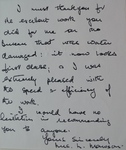 I must thank you for
the excellent work you
did for me on my
bureau that was water
damaged: it now looks
first class; & I was
extremely pleased with
the speed & efficiency of
the work.
I would have no
hesitation recommending
you to anyone.
Yours Sincerely
Mrs.